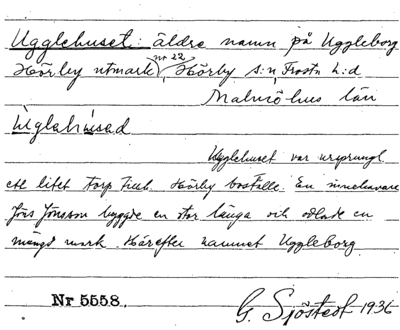 Ugglehuset: äldre namn på Uggleborg
Hörby utmark nr 22, Hörby s:n, Frosta h:d
Malmöhus län
Uglahused
Ugglehuset var ursprungl.
ett litet torp till Hörby boställe. En innehavare
Jöns Jönsson byggde en stor länga och odlade en
mängd mark. Härefter namnet Uggleborg.
Nr 5558.
G. Sjöstedt 1936